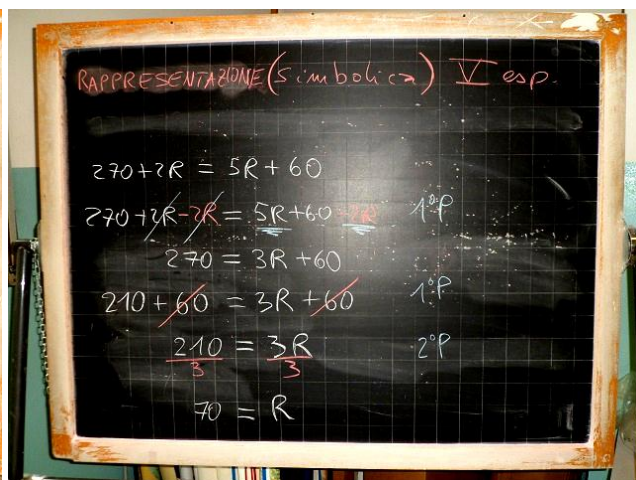 RAPPRESENTAZIONE (Simbolica) V esp.
270+2R = 5R+60
270+2R-2R = 5R+60-2R 1°P
270 = 3R+60
210+60 = 3R+60 1°P
210/3 = 3R/3 2°P
70 = R